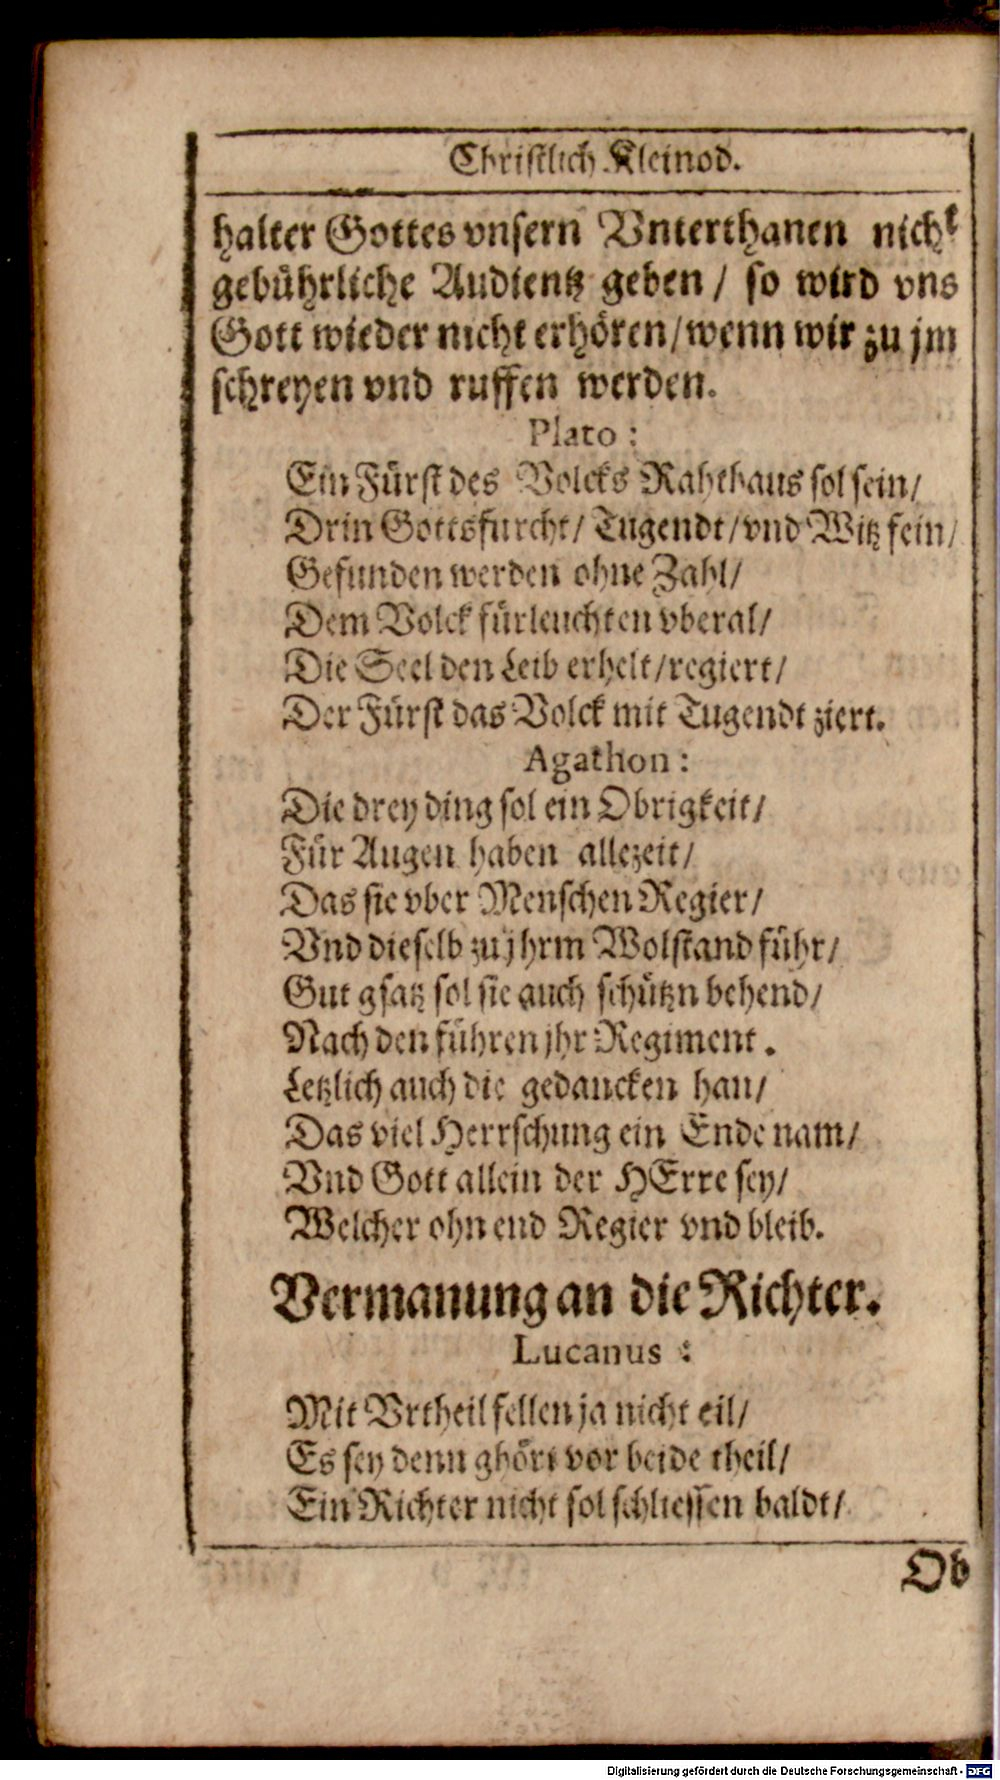 Christlich Kleinod.
halter Gottes vnsern Vnterthanen nicht
gebührliche Audientz geben / so wird vns
Gott wieder nicht erhören/wenn wir zu jm
schreyen vnd ruffen werden.
Plato :
Ein Fürst des Volcks Rahthaus sol sein/
Drin Gottsfurcht/ Tugendt/vnd Witz fein/
Gefunden werden ohne Zahl/
Dem Volck fürleuchten vberal/
Die Seel den Leib erhelt/regiert/
Der Fürst das Volck mit Tugendt ziert.
Agathon :
Die drey ding sol ein Obrigkeit/
Für Augen haben allezeit/
Das sie vber Menschen Regier/
Vnd dieselb zu jhrm Wolstand führ/
Gut gsatz sol sie auch schützn behend/
Nach den führen jhr Regiment .
Letzlich auch die gedancken han/
Das viel Herrschung ein Ende nam/
Vnd Gott allein der HErre sey/
Welcher ohn end Regier vnd bleib.
Vermanung an die Richter.
Lucanus :
Mit Vrtheil fellen ja nicht eil/
Es sey denn ghört vor beide theil/
Ein Richter nicht sol schliessen baldt/
Ob
Digitalisierung gefördert durch die Deutsche Forschungsgemeinschaft - DFG